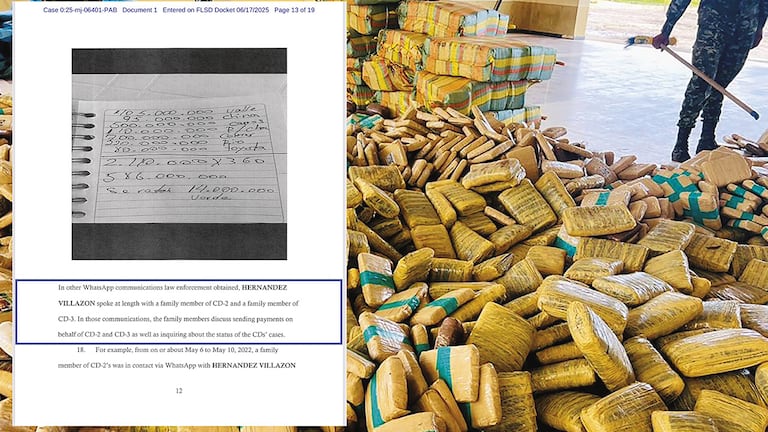 Case 0:25-mj-06401-PAB Document 1 Entered on FLSD Docket 06/17/2025 Page 13 of 19
valle
500.000.000
80.000.000 Toyota
2.180.000.000 x 360
586.000.000
14.000.000
In other WhatsApp communications law enforcement obtained, HERNANDEZ
VILLAZON spoke at length with a family member of CD-2 and a family member of
CD-3. In those communications, the family members discuss sending payments on
behalf of CD-2 and CD-3 as well as inquiring about the status of the CDs' cases.
18. For example, from on or about May 6 to May 10, 2022, a family
member of CD-2's was in contact via WhatsApp with HERNANDEZ VILLAZON
12